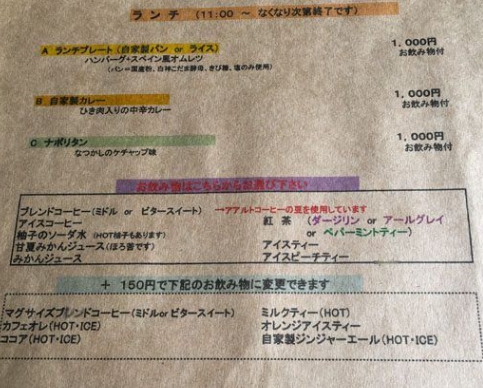 ランチ (11:00 ～ なくなり次第終了です)
A ランチプレート (自家製パン or ライス) 1,000円
ハンバーグ+スペイン風オムレツ お飲み物付
(パン=国産粉、白神こだま酵母、きび糖、塩のみ使用)
B 自家製カレー 1,000円
ひき肉入りの中辛カレー お飲み物付
C ナポリタン 1,000円
なつかしのケチャップ味 お飲み物付
お飲み物はこちらからお選び下さい
ブレンドコーヒー(ミドル or ビタースイート) →アアルトコーヒーの豆を使用しています
アイスコーヒー 紅 茶 (ダージリン or アールグレイ
柚子のソーダ水 (HOT柚子もあります) or ペパーミントティー)
甘夏みかんジュース(ほろ苦です) アイスティー
みかんジュース アイスピーチティー
+ 150円で下記のお飲み物に変更できます
マグサイズブレンドコーヒー(ミドルor ビタースイート) ミルクティー(HOT)
カフェオレ(HOT・ICE) オレンジアイスティー
ココア(HOT・ICE) 自家製ジンジャーエール(HOT・ICE)